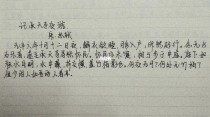 记承天寺夜游
宋 苏轼
元丰六年十月十二日夜,解衣欲睡,月色入户,欣然起行。念无与
为乐者,遂至承天寺寻张怀民。怀民亦未寝,相与步于中庭。庭下如
积水空明,水中藻、荇交横,盖竹柏影也。何夜无月?何处无竹柏?
但少闲人如吾两人者耳。